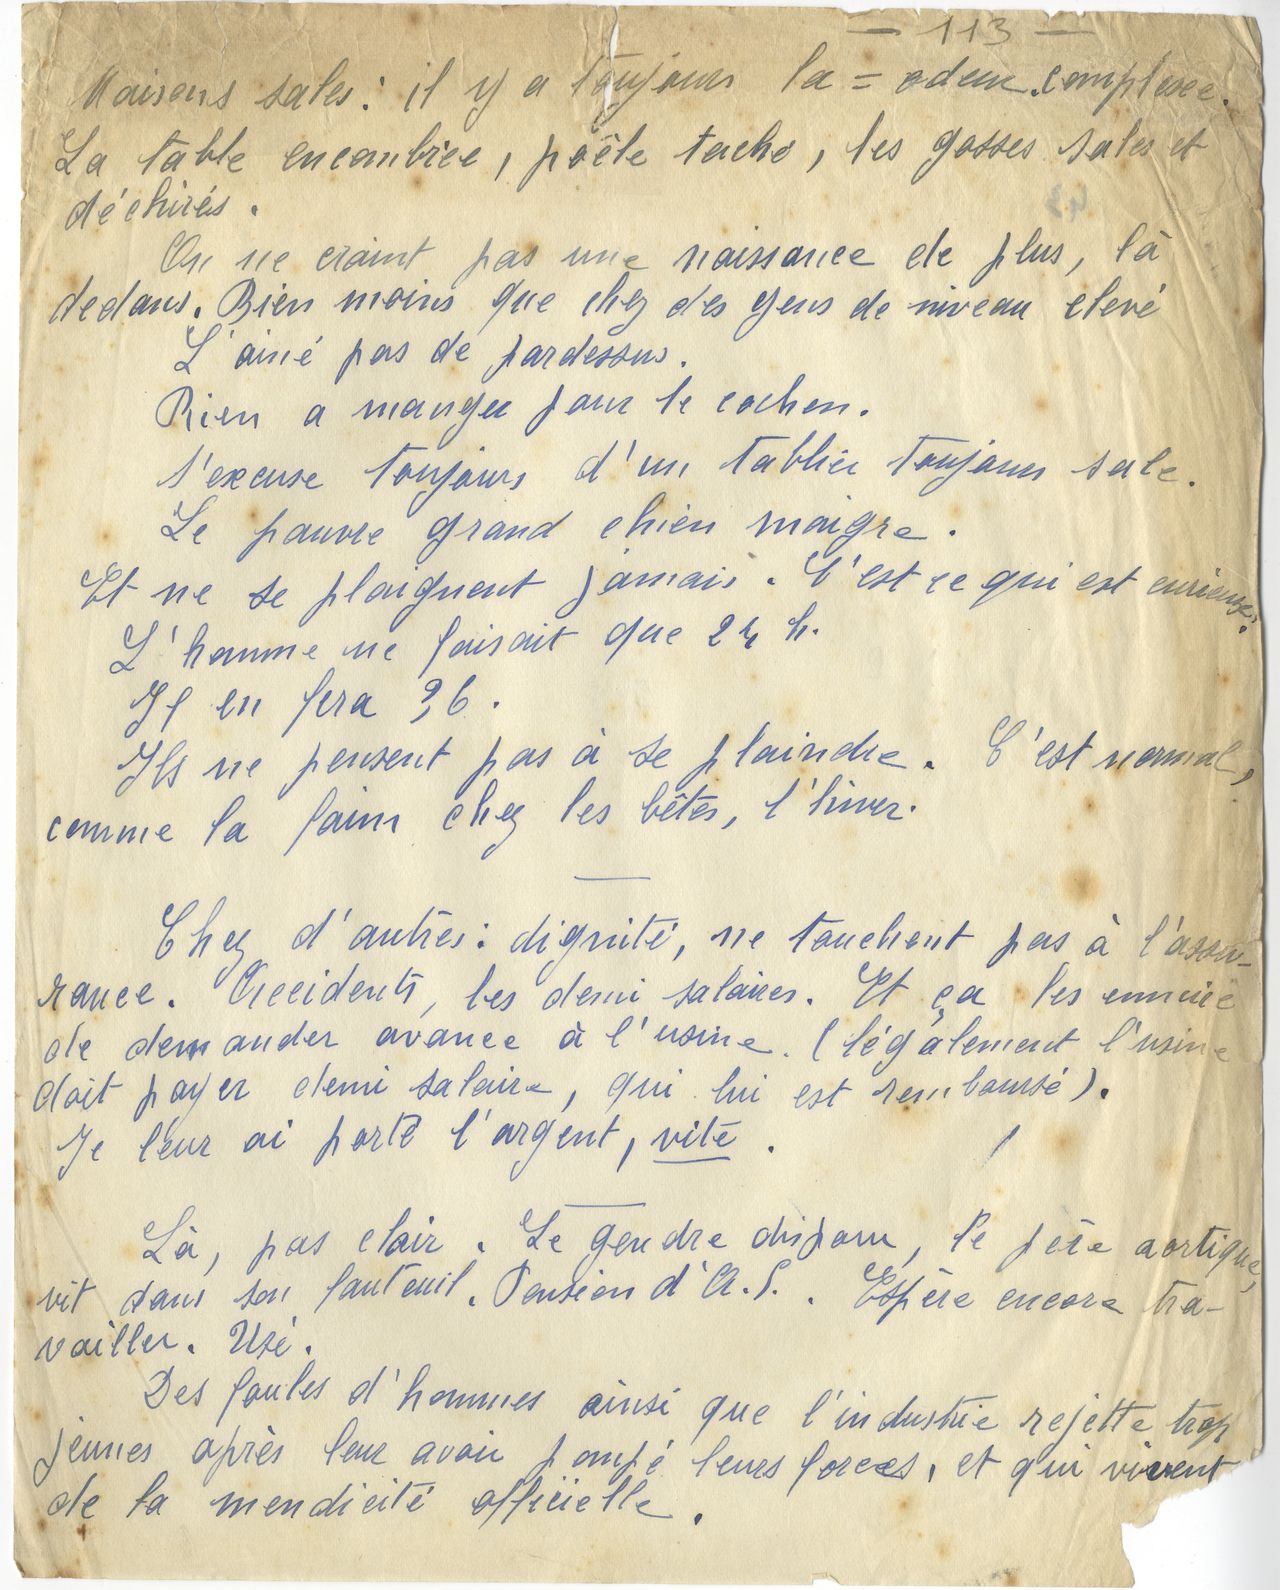 — 113 —
Maisons sales : il y a toujours la = odeur complexe.
La table encombrée, poêle taché, les gosses sales et
déchirés.
On ne craint pas une naissance de plus, là
dedans. Bien moins que chez des gens de niveau élevé
L'ainé pas de pardessus.
Rien a manger pour le cochon.
S'excuse toujours d'un tablier toujours sale.
Le pauvre grand chien maigre.
Et ne se plaignent jamais. C'est ce qui est curieux.
L'homme ne faisait que 24 h.
Il en fera 36.
Ils ne pensent pas à se plaindre. C'est normal,
comme la faim chez les bêtes, l'hiver.
Chez d'autres : dignité, ne touchent pas à l'assu-
rance. Accidents, les demi salaires. Et ça les ennuie
de demander avance à l'usine. (légalement l'usine
doit payer demi salaire, qui lui est remboursé).
Je leur ai porté l'argent, vite.
Là, pas clair. Le gendre disparu, le père aortique,
vit dans son fauteuil. Pension d'A.S.. Espère encore tra-
vailler. Usé.
Des foules d'hommes ainsi que l'industrie rejette trop
jeunes après leur avoir pompé leurs forces, et qui vivent
de la mendicité officielle.